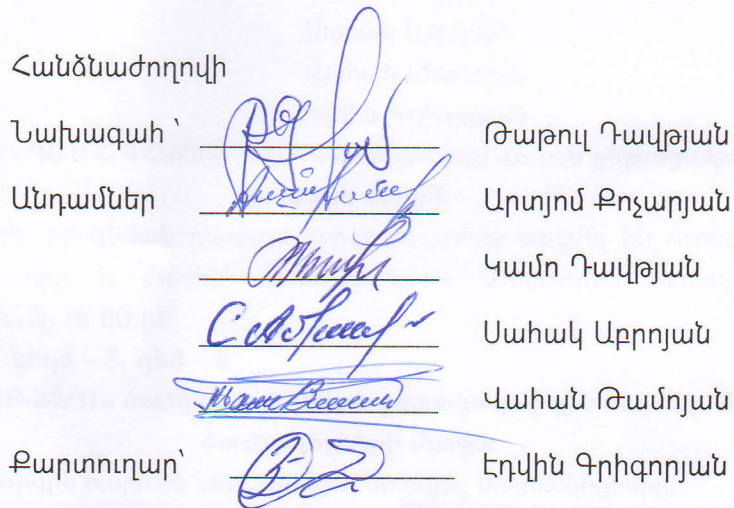 Հանձնաժողովի
Նախագահ ՝ Թաթուլ Դավթյան
Անդամներ Արտյոմ Քոչարյան
Կամո Դավթյան
Սահակ Աբրոյան
Վահան Թամոյան
Քարտուղար՝ Էդվին Գրիգորյան